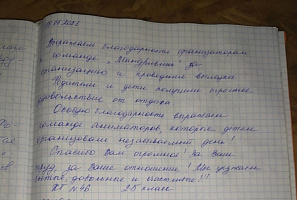 Выражаем благодарность организаторам
и команде „ за
организацию и проведение выезда
Родители и дети получили огромное
удовольствие от отдыха
Особую благодарность выражаем
команде аниматоров, которые детям
организовали незабываемый день!
Спасибо Вам огромное! За Ваш
труд, за Ваше отношение! Мы уезжаем
довольные и счастливые!!!
№ 46 класс